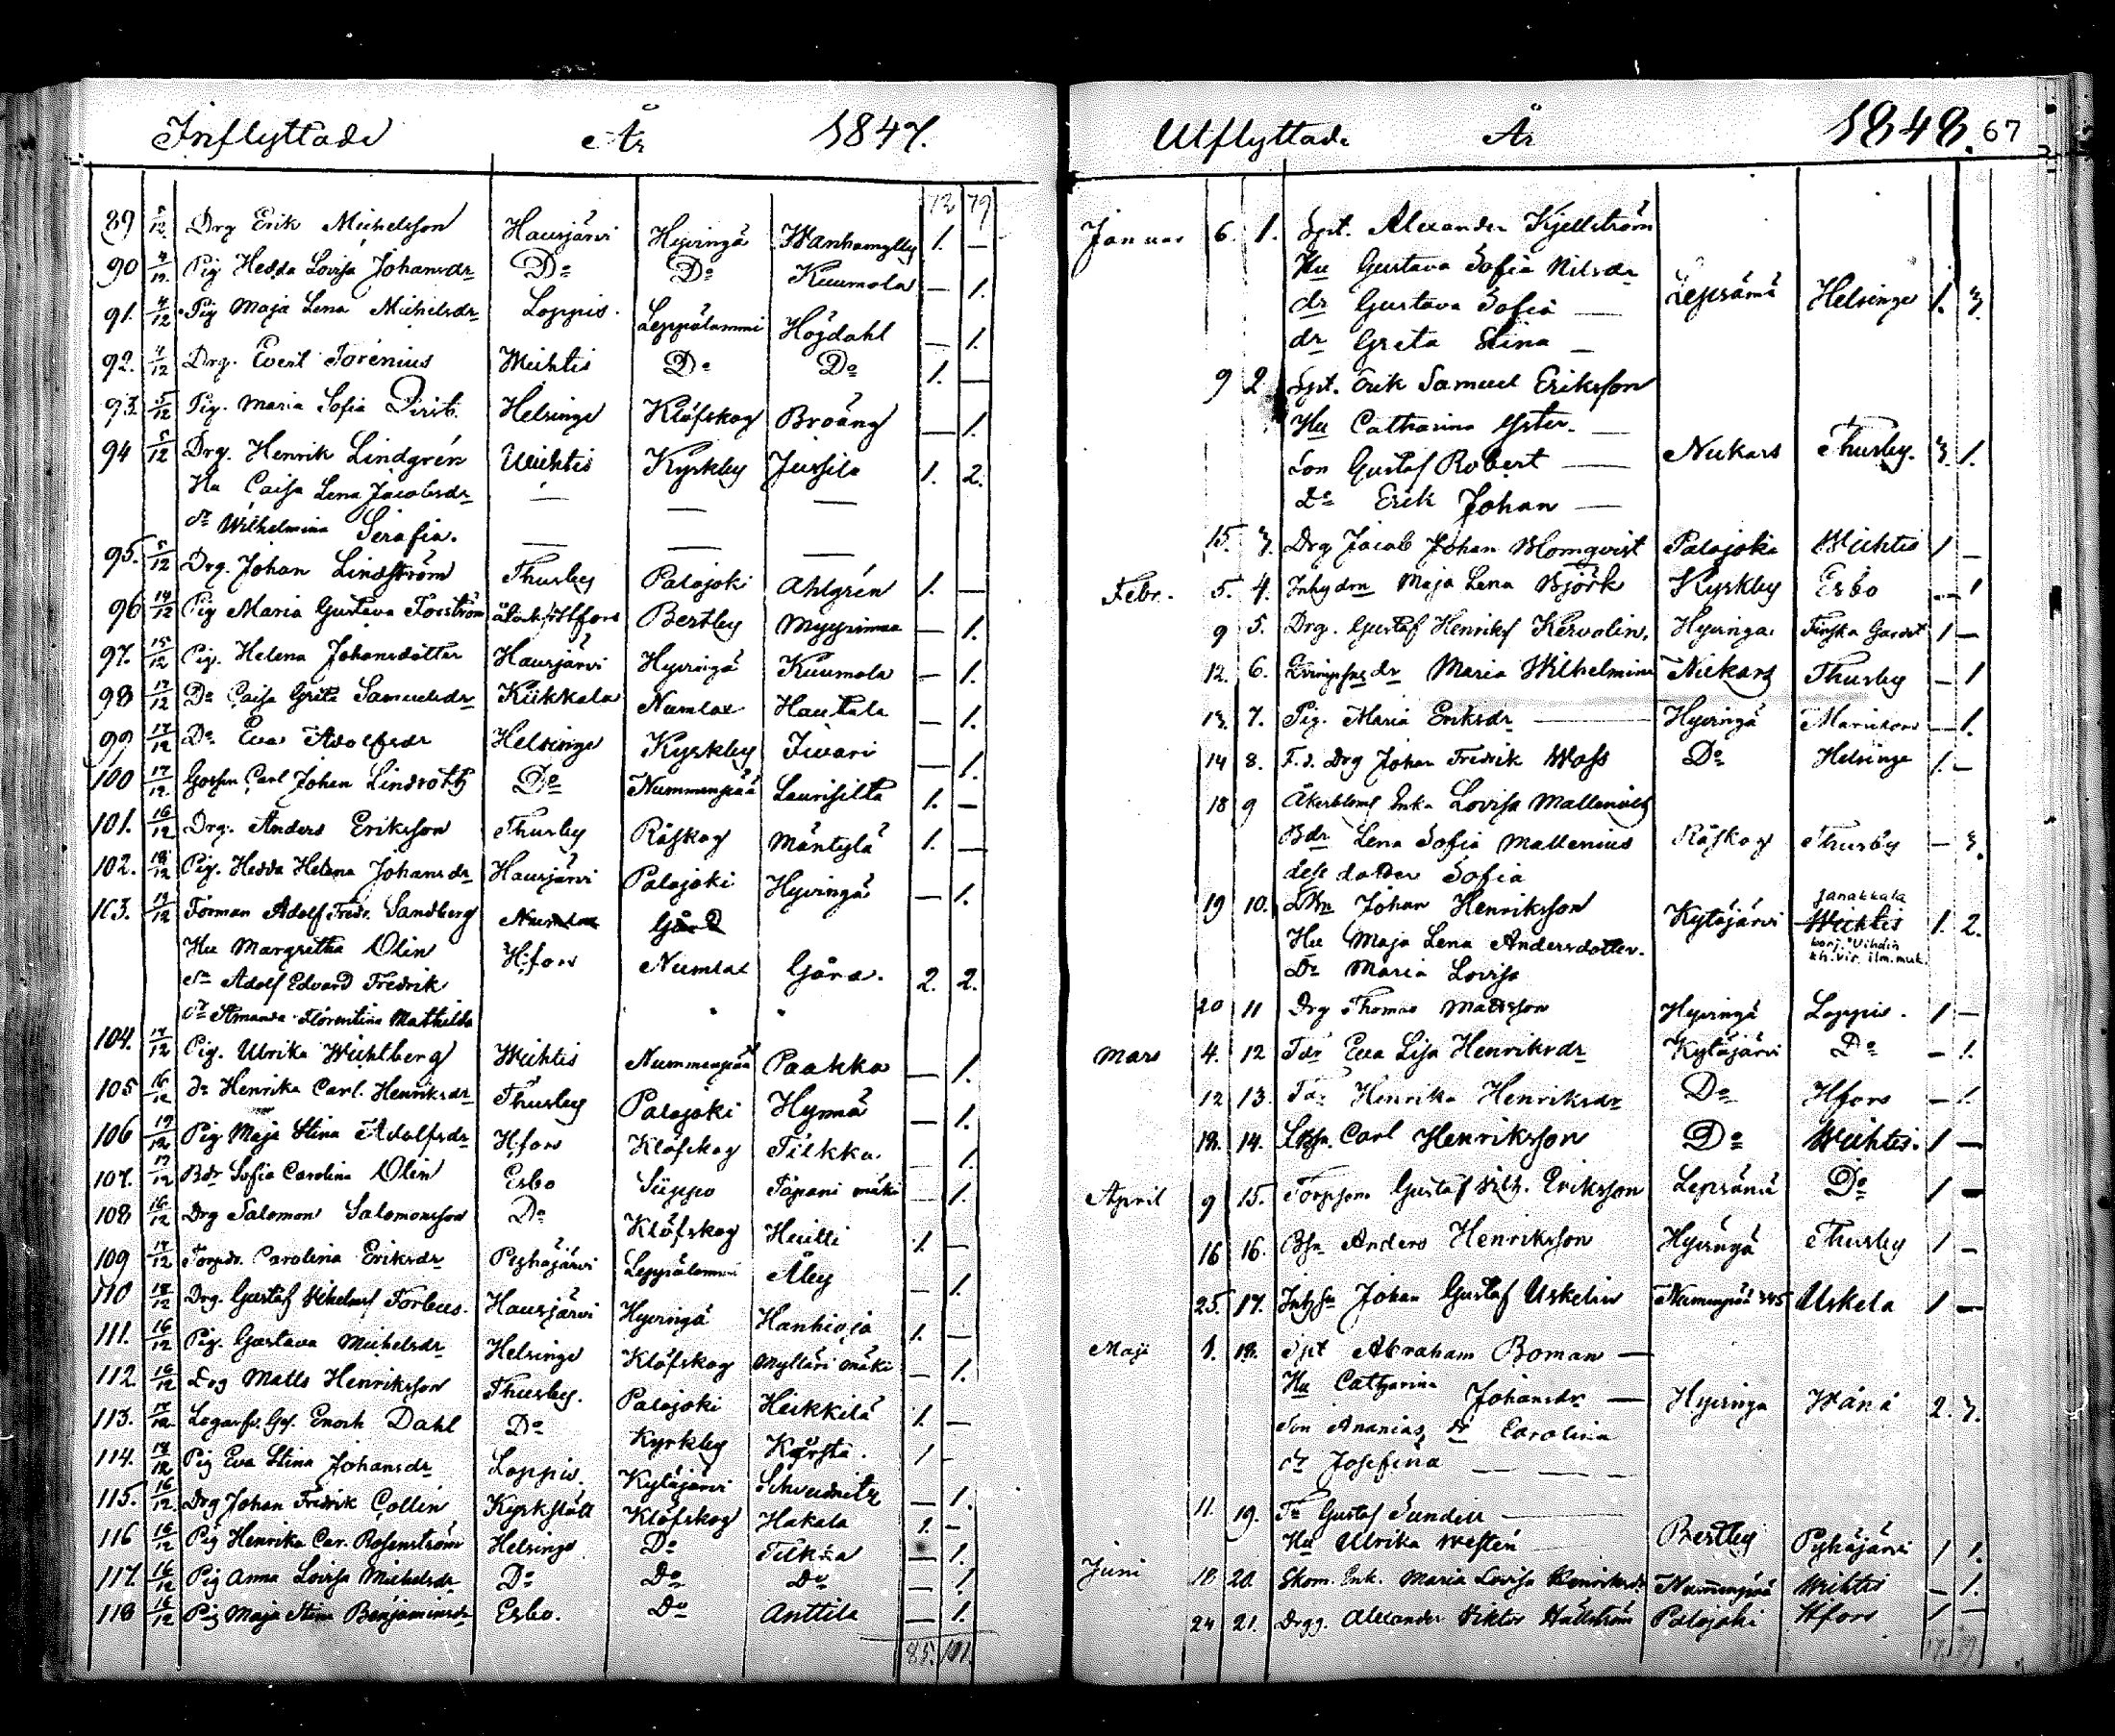 Inflyttade År 1847.
12 79
89 5/12 Drg Erik Michelsson Hausjärvi Hyvingä Wanhamylly 1. —
90 4/12 Pig Hedda Lovisa Johansdr Do Do Kuumola — 1.
91. 4/12 Pig Maja Lena Michelsdr Loppis. Leppälammi Högdahl — 1.
92. 4/12 Drg. Evert Forenius Wichtis Do Do 1. —
93. 5/12 Pig. Maria Sofia Helsinge Klöfskog Broäng — 1.
94 5/12 Drg. Henrik Lindgrén Wichtis Kyrkby Jussila 1. 2.
Hu Caisa Lena Jacobsdr — — —
dr Wilhelmina Serafia. — — —
95. 5/12 Drg. Johan Lindström Thusby Palojoki Ahlgrén 1. —
96 14/12 Pig Maria Gustava Forsström Hfors Bertby Myyrimaa — 1.
97. 15/12 Pig. Helena Johansdotter Hausjärvi Hyvingä Kuumola — 1.
98 17/12 Do Caisa Greta Samuelsdr Kiikkala Numlax Hautala — 1.
99 17/12 Do Eva Adolfsdr Helsinge Kyrkby Iivari — 1.
100 17/12 Gossen Carl Johan Lindroth Do Nummenpää Laurisilta 1. —
101. 16/12 Drg. Anders Eriksson Thusby Råskog Mäntylä 1. —
102. 18/12 Pig. Hedda Helena Johansdr Hausjärvi Palojoki Hyvingä — 1.
103. 17/12 Forman Adolf Fredr. Sandberg Numlax Gård
Hu Margretha Olin Hfors Numlax Gård. 2. 2.
sn Adolf Edvard Fredrik
dr Amanda Florentina Mathilda
104. 17/12 Pig. Ulrika Wichtberg Wichtis Nummenpää Paakka — 1.
105 16/12 dr Henrika Carl. Henriksdr Thusby Palojoki Hymä — 1.
106 19/12 Pig Maja Stina Adolfsdr Hfors Klöfskog Tilkka. — 1.
107. 17/12 Bdr Sofia Carolina Olin Esbo Siippo Tapani mäki — 1.
108 16/12 Drg Salomon Salomonsson Do Klöfskog Heilli 1. —
109 17/12 Torpdr. Carolina Eriksdr Pyhäjärvi Leppälammi Åby — 1.
110 18/12 Drg. Gustaf Wilhelm Forlius. Hausjärvi Hyvingä Hanhioja 1. —
111. 16/12 Pig. Gustava Michelsdr Helsinge Klöfskog Myllärimäki — 1.
112. 16/12 Drg Matts Henriksson Thusby. Palojoki Heikkilä 1. —
113. 17/12 Enoch Dahl Do Kyrkby Körsta. 1 -
114. 17/12 Pig Eva Stina Johansdr Loppis. Kytäjärvi Schveidnitz — 1.
115. 16/12 Drg Johan Fredrik Collin Kyrkslätt Klöfskog Hakala 1. —
116 16/12 Pig Henrika Car. Rosenström Helsinge Do Tilkka — 1.
117. 16/12 Pig Anna Lovisa Michelsdr Do Do Do — 1.
118 16/12 Pig Maja Stina Benjaminsdr Esbo. Do Anttila — 1.
85. 101.
Utflyttade År 1848. 67
Januar 6. 1. Spt. Alexander Kjellström
Hu Gustava Sofia Nilsdr
dr Gustava Sofia — Lepsämä Helsinge 1. 3.
dr Greta Stina —
9 2 Spt. Erik Samuel Eriksson
Hu Catharina Yster. —
Son Gustaf Robert — Nukars Thusby. 3. 1.
Do Erik Johan —
15. 3. Drg Jacob Johan Blomqvist Palojoki Wichtis 1 —
Febr. 5. 4. Inhydrn Maja Lena Björk Kyrkby Esbo — 1
9 5. Drg. Gustaf Henriks Kervolin. Hyvinga. Finska Gardet 1 —
12. 6. dr Maria Wilhelmina Nukars Thusby — 1
13. 7. Pig. Maria Eriksdr — Hyvingä — 1.
14 8. F.d. Drg Johan Fredrik Wass Do Helsinge 1. —
18 9 Åkerbloms Enka Lovisa Mallenius
Bdr Lena Sofia Mallenius Råskog Thusby — 3.
dess dotter Sofia
19 10. Johan Henriksson Kytäjärvi Janakkala Wichtis 1. 2.
Hu Maja Lena Andersdotter. korj. Vihdin
Dr Maria Lovisa kh.vir. ilm. muk.
20 11 Drg Thomas Mattsson Hyvingä Loppis. 1 —
Mars 4. 12 Tdr Eva Lisa Henriksdr Kytäjärvi Do — 1.
12 13. Tdr Henrika Henriksdr Do Hfors — 1.
18. 14. Carl Henriksson Do Wichtis. 1 —
April 9 15. Torpson Gustaf Vilh. Eriksson Lepsämä Do 1 —
16 16. Bsn Anders Henriksson Hyvingä Thusby 1 —
25. 17. Johan Gustaf Uskelin Nummenpää Uskela 1 —
Maji 1. 18. Spt Abraham Boman —
Hu Catharina Johansdr — Hyvinga Wånå 2. 3.
Son Ananias, dr Carolina
dr Josefina — — —
11. 19. Gustaf Sundell —
Hu Ulrika Westén Bertby Pyhäjärvi 1 1.
Juni 18 20. Skom. Enk. Maria Lovisa Henriksdr Nummenpää Wichtis — 1.
24 21. Drg. Alexander Viktor Hällström Palojoki Hfors 1 —